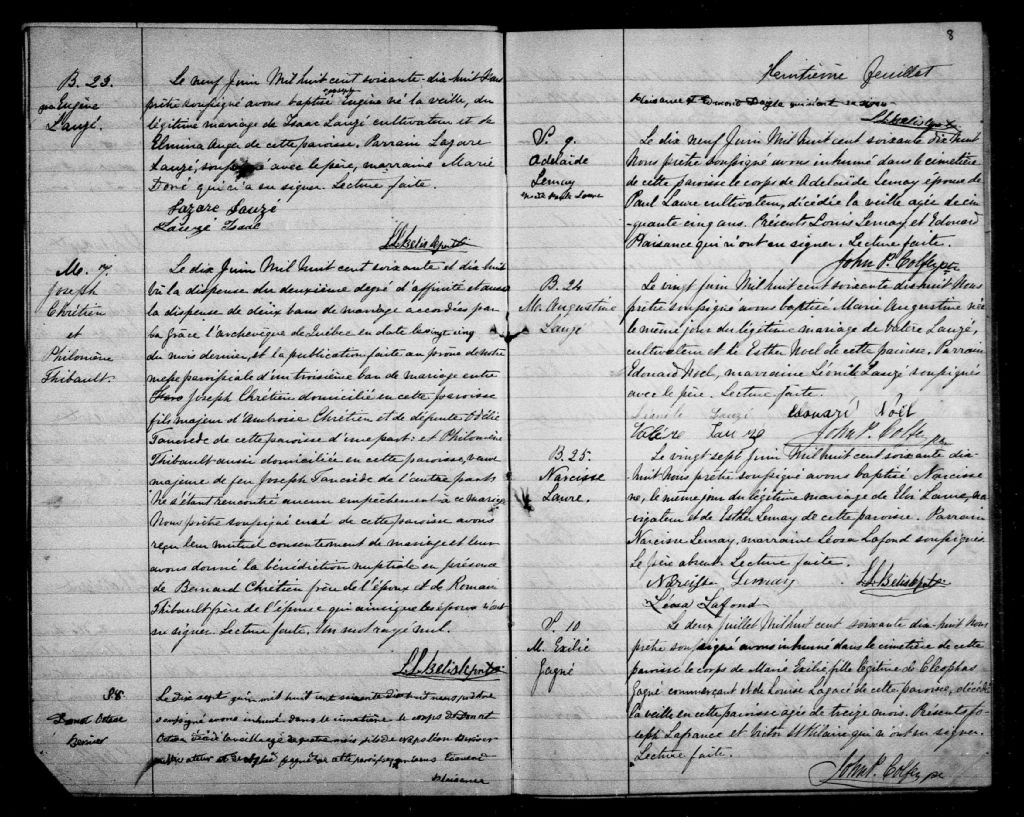 B. 23.
Eugène
Lauzé.
Le neuf Juin Mil huit cent soixante-dix-huit Nous
prêtre soussigné avons baptisé Eugène né la veille, du
légitime mariage de Isaac Lauzé cultivateur et de
Elmina Auger de cette paroisse. Parrain Lazare
Lauzé, soussigné avec le père, marraine Marie
Doré qui n'a su signer. Lecture faite.
Lazare Lauzé
Lauzé Isaac
M. 7
Joseph
Chrétien
et
Philomène
Thibault.
Le dix Juin Mil huit cent soixante et dix huit
Vu la dispense du deuxième degré d'affinité et aussi
la dispense de deux bans de mariage accordées par
Sa Grâce l'archevêque de Québec en date le vingt cinq
du mois dernier, et la publication faite au prône de notre
messe paroissiale d'un troisième ban de mariage entre
Joseph Chrétien domicilié en cette paroisse
fils majeur d'Ambroise Chrétien et de défunte
Tancrède de cette paroisse d'une part; et Philomène
Thibault aussi domiciliée en cette paroisse, veuve
majeure de feu Joseph Tancrède de l'autre part:
Ne s'étant rencontré aucun empêchement à ce mariage
Nous prêtre soussigné curé de cette paroisse avons
reçu leur mutuel consentement de mariage et leur
avons donné la bénédiction nuptiale en présence
de Bernard Chrétien frère de l'époux et de Romain
Thibault frère de l'épouse qui ainsi que les époux n'ont
su signer. Lecture faite. Un mot rayé nul.
S8.
Bernier
Le dix sept juin mil huit cent soixante dix huit nous prêtre
soussigné avons inhumé dans le cimetière le corps de
de quatre mois fils de Napoléon Bernier
et de de cette paroisse
Plaisance
8
Huitième feuillet
Plaisance & Edmond Daigle qui n'ont su signer
S. 9.
Adelaide
Lemay
Paul Laure
Le dix neuf Juin Mil huit cent soixante dix huit
Nous prêtre soussigné avons inhumé dans le cimetière
de cette paroisse le corps de Adelaïde Lemay épouse de
Paul Laure cultivateur, décédée la veille agée de cin-
quante cinq ans. Présents Louis Lemay et Edouard
Plaisance qui n'ont su signer. Lecture faite.
John P. Colfer ptre
B. 24
M. Augustine
Lauzé
Le vingt Juin Mil huit cent soixante dix huit Nous
prêtre soussigné avons baptisé Marie Augustine née
le même jour du légitime mariage de Valère Lauzé,
cultivateur et de Esther Noel de cette paroisse, Parrain
Edouard Noel, marraine Léonite Lauzé soussignés
avec le père. Lecture faite.
Léonite Lauzé Edouard Noël
Valère Lauzé John P. Colfer ptre
B. 25.
Narcisse
Laure.
Le vingt sept Juin Mil huit cent soixante dix-
huit Nous prêtre soussigné avons baptisé Narcisse
né, le même jour du légitime mariage de Laure, na-
vigateur et de Esther Lemay de cette paroisse. Parrain
Narcisse Lemay, marraine Léosa Lafond soussignés
Le père absent. Lecture faite.
Narcisse Lemay
Léosa Lafond
S. 10
M. Exilié
Gagné
Le deux Juillet Mil huit cent soixante dix-huit Nous
prêtre soussigné avons inhumé dans le cimetière de cette
paroisse le corps de Marie Exilié fille légitime de Cléophas
Gagné commerçant et de Louise Lagacé de cette paroisse, décédée
la veille en cette paroisse agée de treize mois. Présents Jo-
seph Lafrance et Victor St Hilaire qui n'ont su signer.
Lecture faite.
John P. Colfer ptre